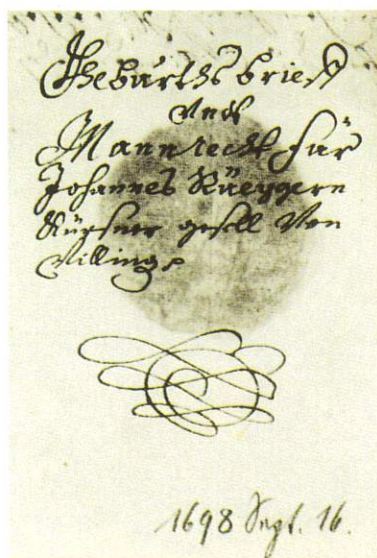 Gebürths brieff
Und
Mannrecht für
Johannes Rüeggern
Kürsner gesell Von
Villinge
1698 Sept. 16.